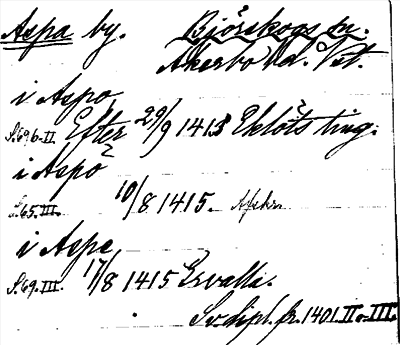 Aspa by. Björskogs sn.
Åkerbo hd. Vst.
i Aspo,
S. 696. II. Efter 29/9 1413 Eklöts ting.
i Aspö
S. 65. III. 10/8 1415.
i Aspe
S. 69. III. 17/8 1415 Ervalla.
Sv. dipl. fr. 1401. II o. III.